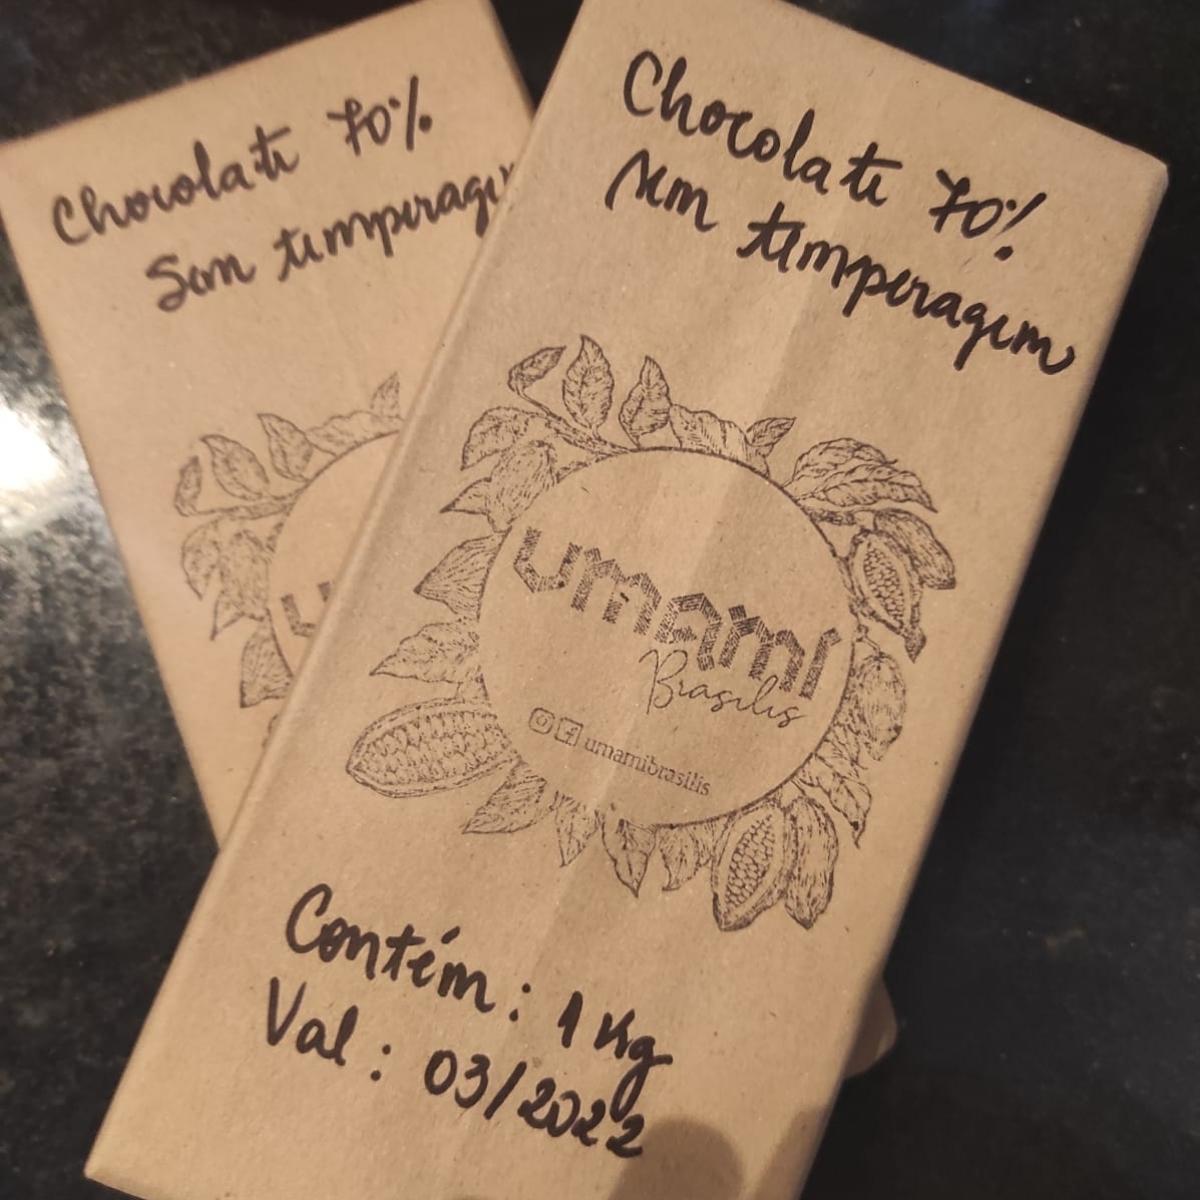 Chocolate 70%
Sem temperagem
Chocolate 70%
sem temperagem
umami
Brasilis
umamibrasilis
Contém: 1 Kg
Val: 03/2022